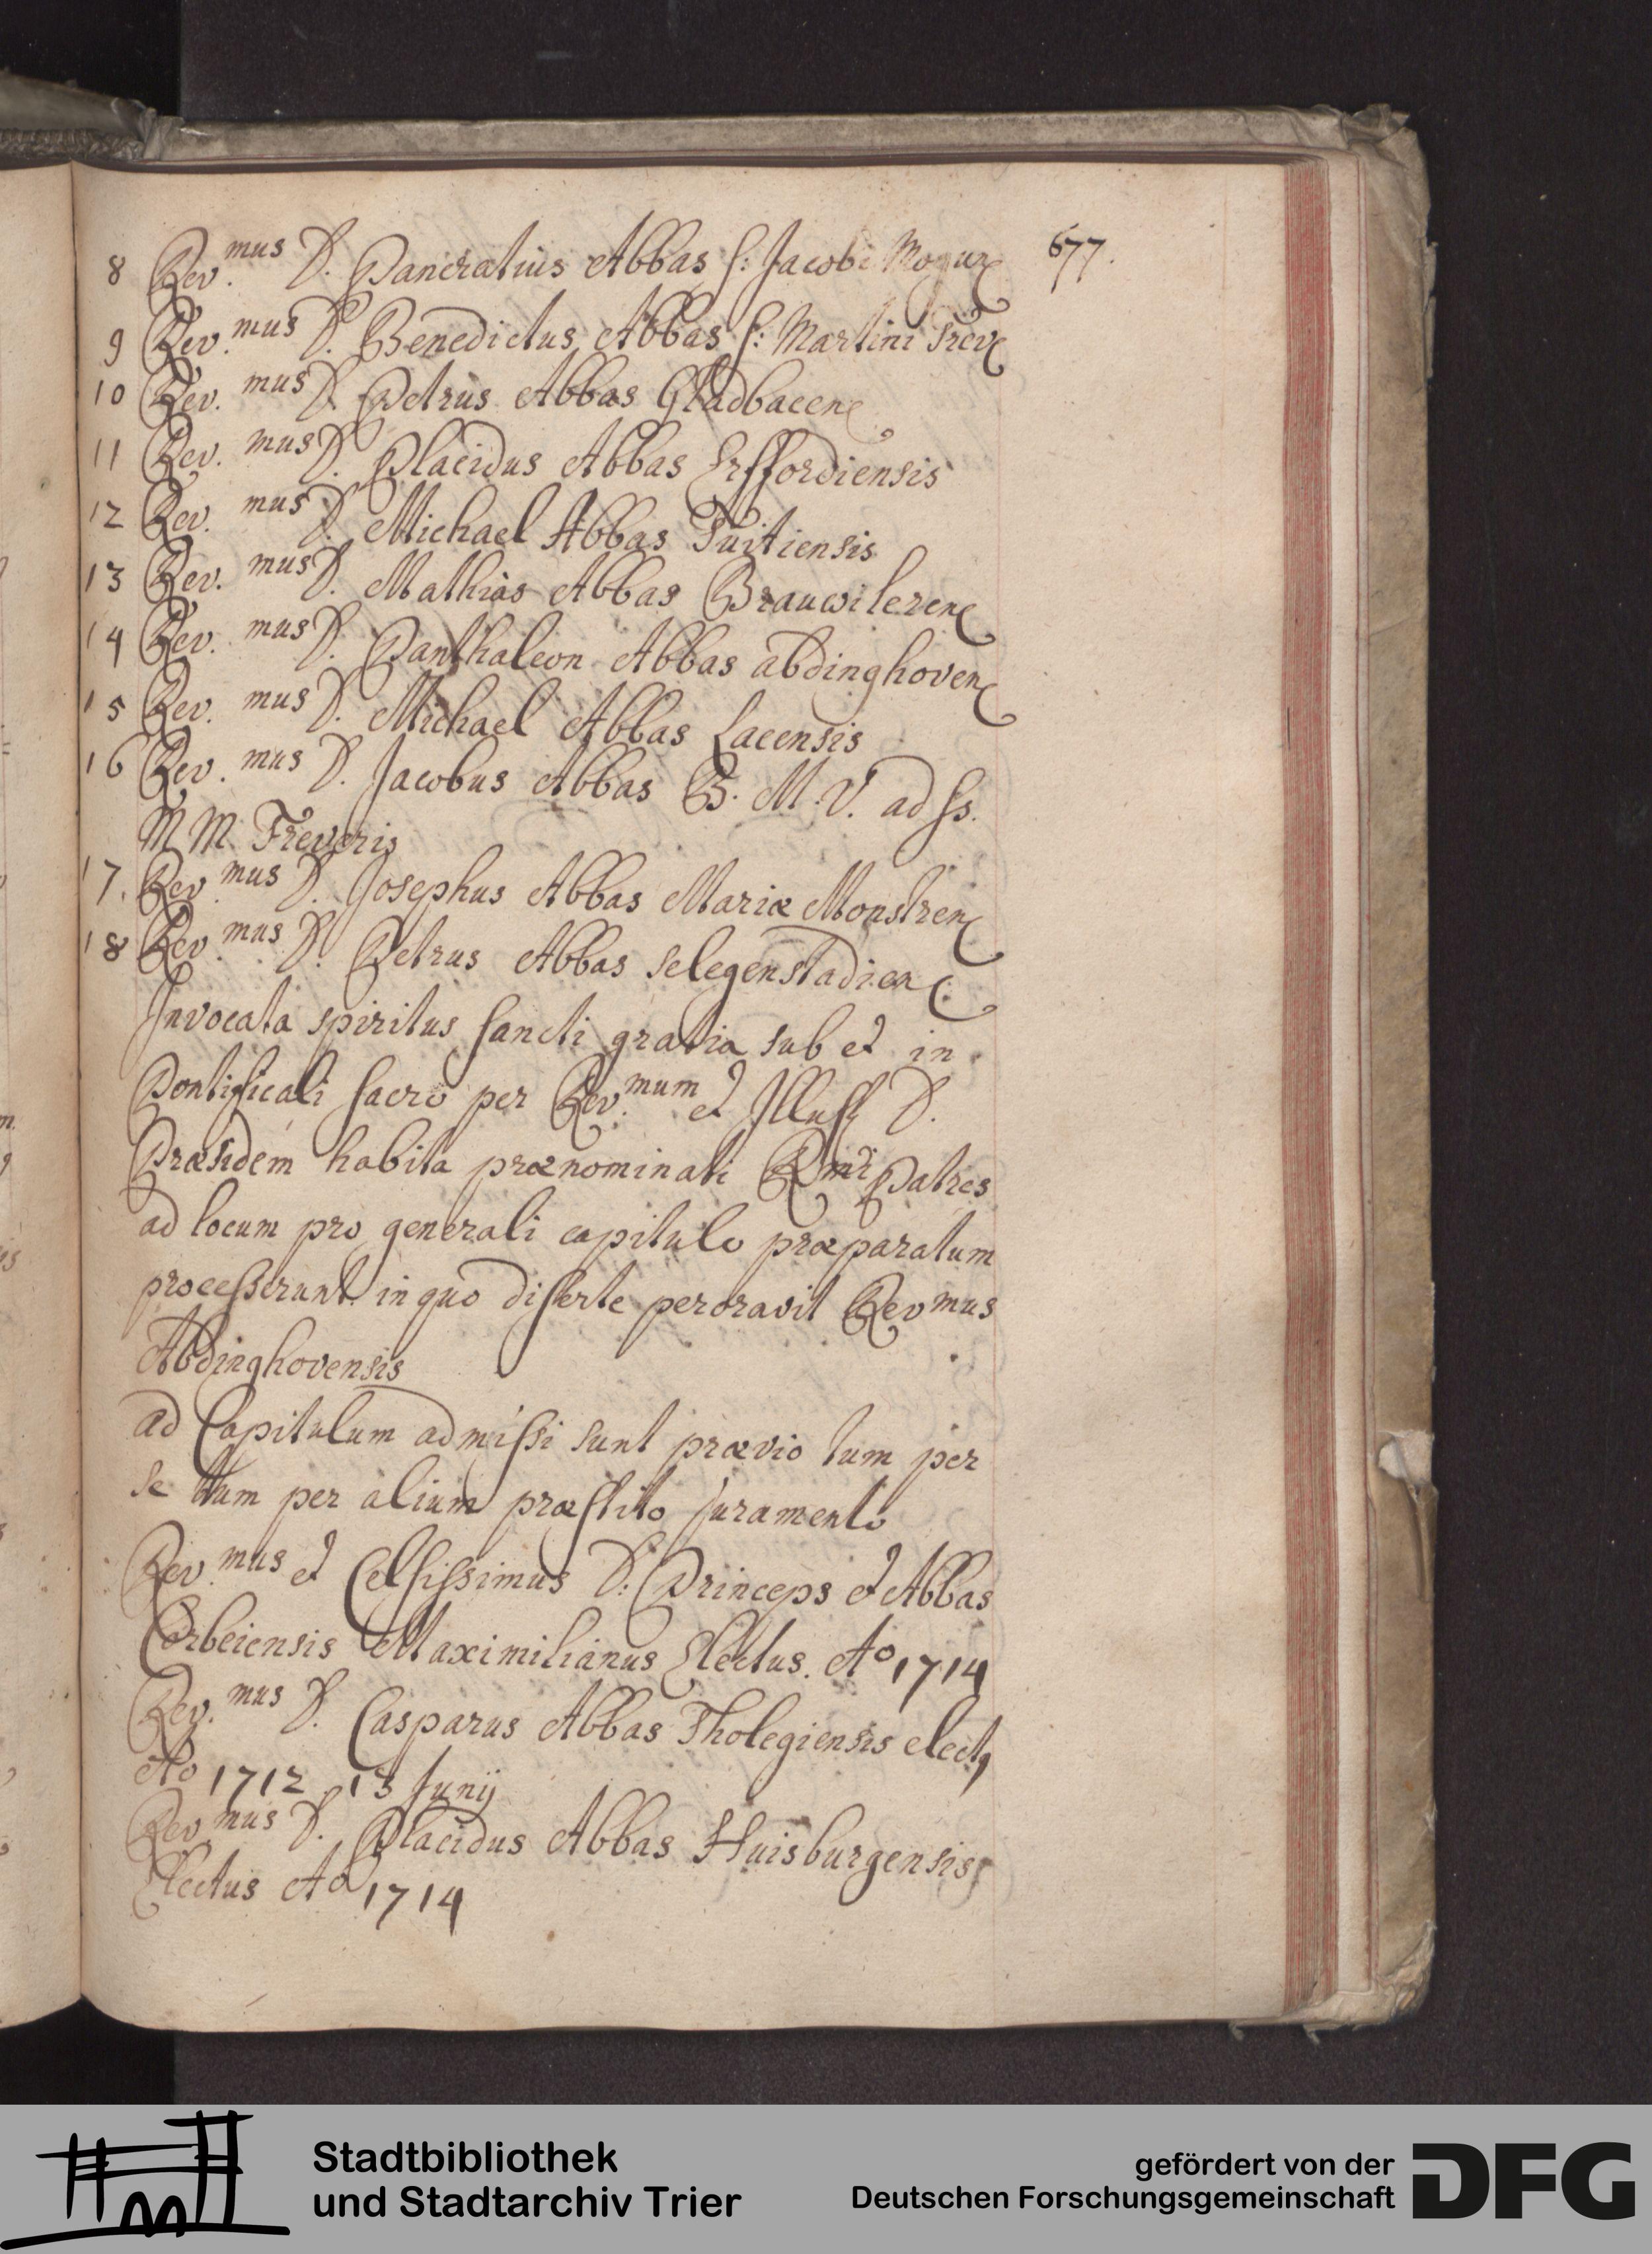 677.
8 Rev.mus D. Pancratius Abbas S: Jacobi Mogun
9 Rev.mus D. Benedictus Abbas S: Martini Trev
10 Rev.mus D. Petrus Abbas Gladbacen
11 Rev.mus D. Placidus Abbas Erffordiensis
12 Rev.mus D. Michael Abbas Tuitiensis
13 Rev.mus D. Mathias Abbas Brauwileren
14 Rev.mus D. Panthaleon Abbas abdinghoven
15 Rev.mus D. Michael Abbas Lacensis
16 Rev.mus D. Jacobus Abbas B. M. V. ad ss.
M M. Treveris
17. Rev.mus D. Josephus Abbas Mariæ Monstren
18 Rev.mus D. Petrus Abbas selegenstadien
Invocata spiritus sancti gratia sub et in
Pontificali sacro per Rev.mum et Illuss D.
Præsidem habita prænominati Rmi Patres
ad locum pro generali capitulo præparatum
processerunt in quo diserte peroravit Revmus
Abdinghovensis
ad Capitulum admissi sunt prævio tum per
se tum per alium præstito juramento
Rev.mus et Celsissimus D: Princeps et Abbas
Corbeiensis Maximilianus Electus. Ao 1714
Rev.mus D. Casparus Abbas Tholegiensis elect9
Ao 1712 13 Junij
Rev.mus D. Placidus Abbas Huisburgensis
Electus Ao 1714
Stadtbibliothek
und Stadtarchiv Trier
gefördert von der
Deutschen Forschungsgemeinschaft
DFG